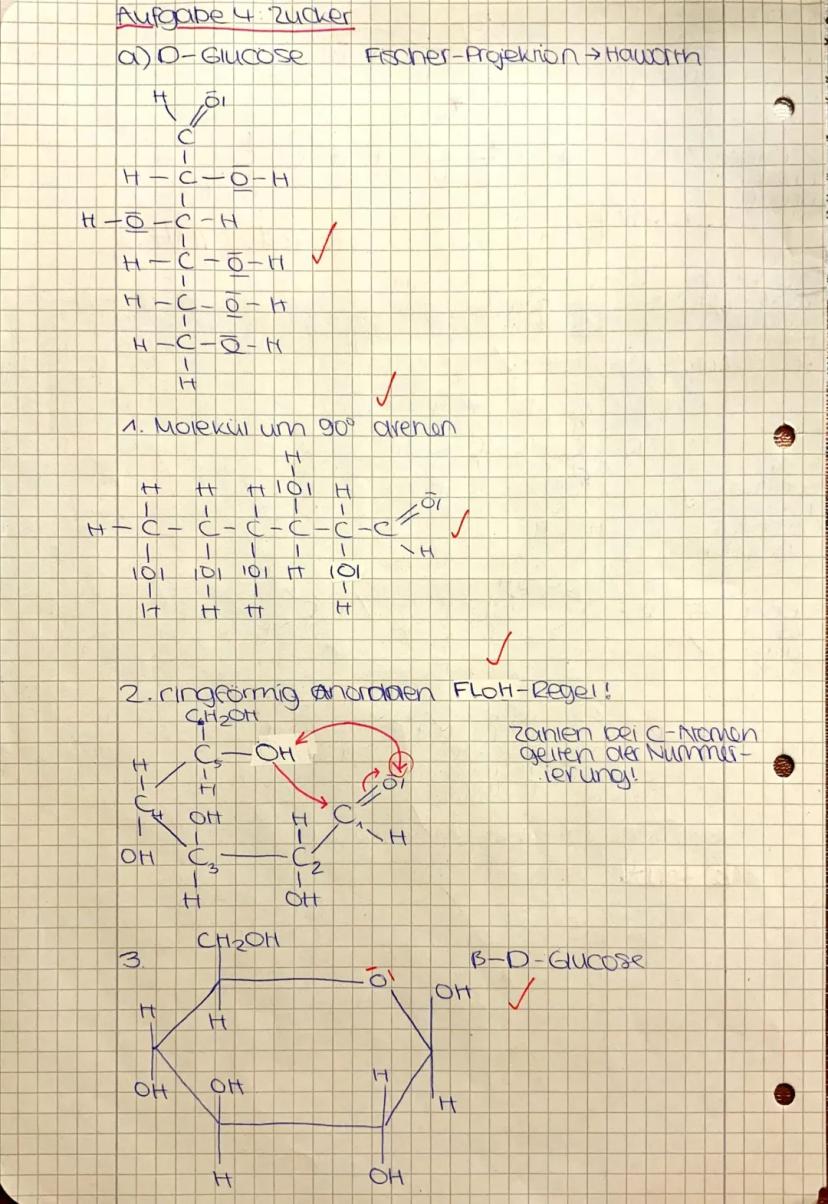 Aufgabe 4: Zucker
a) D-Glucose Fischer-Projektion → Haworth
H O
C
H – C – O – H
H – O – C – H
H – C – O – H
H – C – O – H
H – C – O – H
H
1. Molekül um 90° drehen
H
H H H |O| H
H – C – C – C – C – C – C O
H
|O| |O| |O| H |O|
H H H H
2. ringförmig anordnen FLOH-Regel!
Zahlen bei C-Atomen
gelten der Nummer-
ierung!
C₆H₂OH
C₅ – OH
H
H
O
C₄ OH H C₁
H
OH C₃ C₂
H OH
3. CH₂OH β-D-Glucose
O OH
H H
OH OH H H
H OH